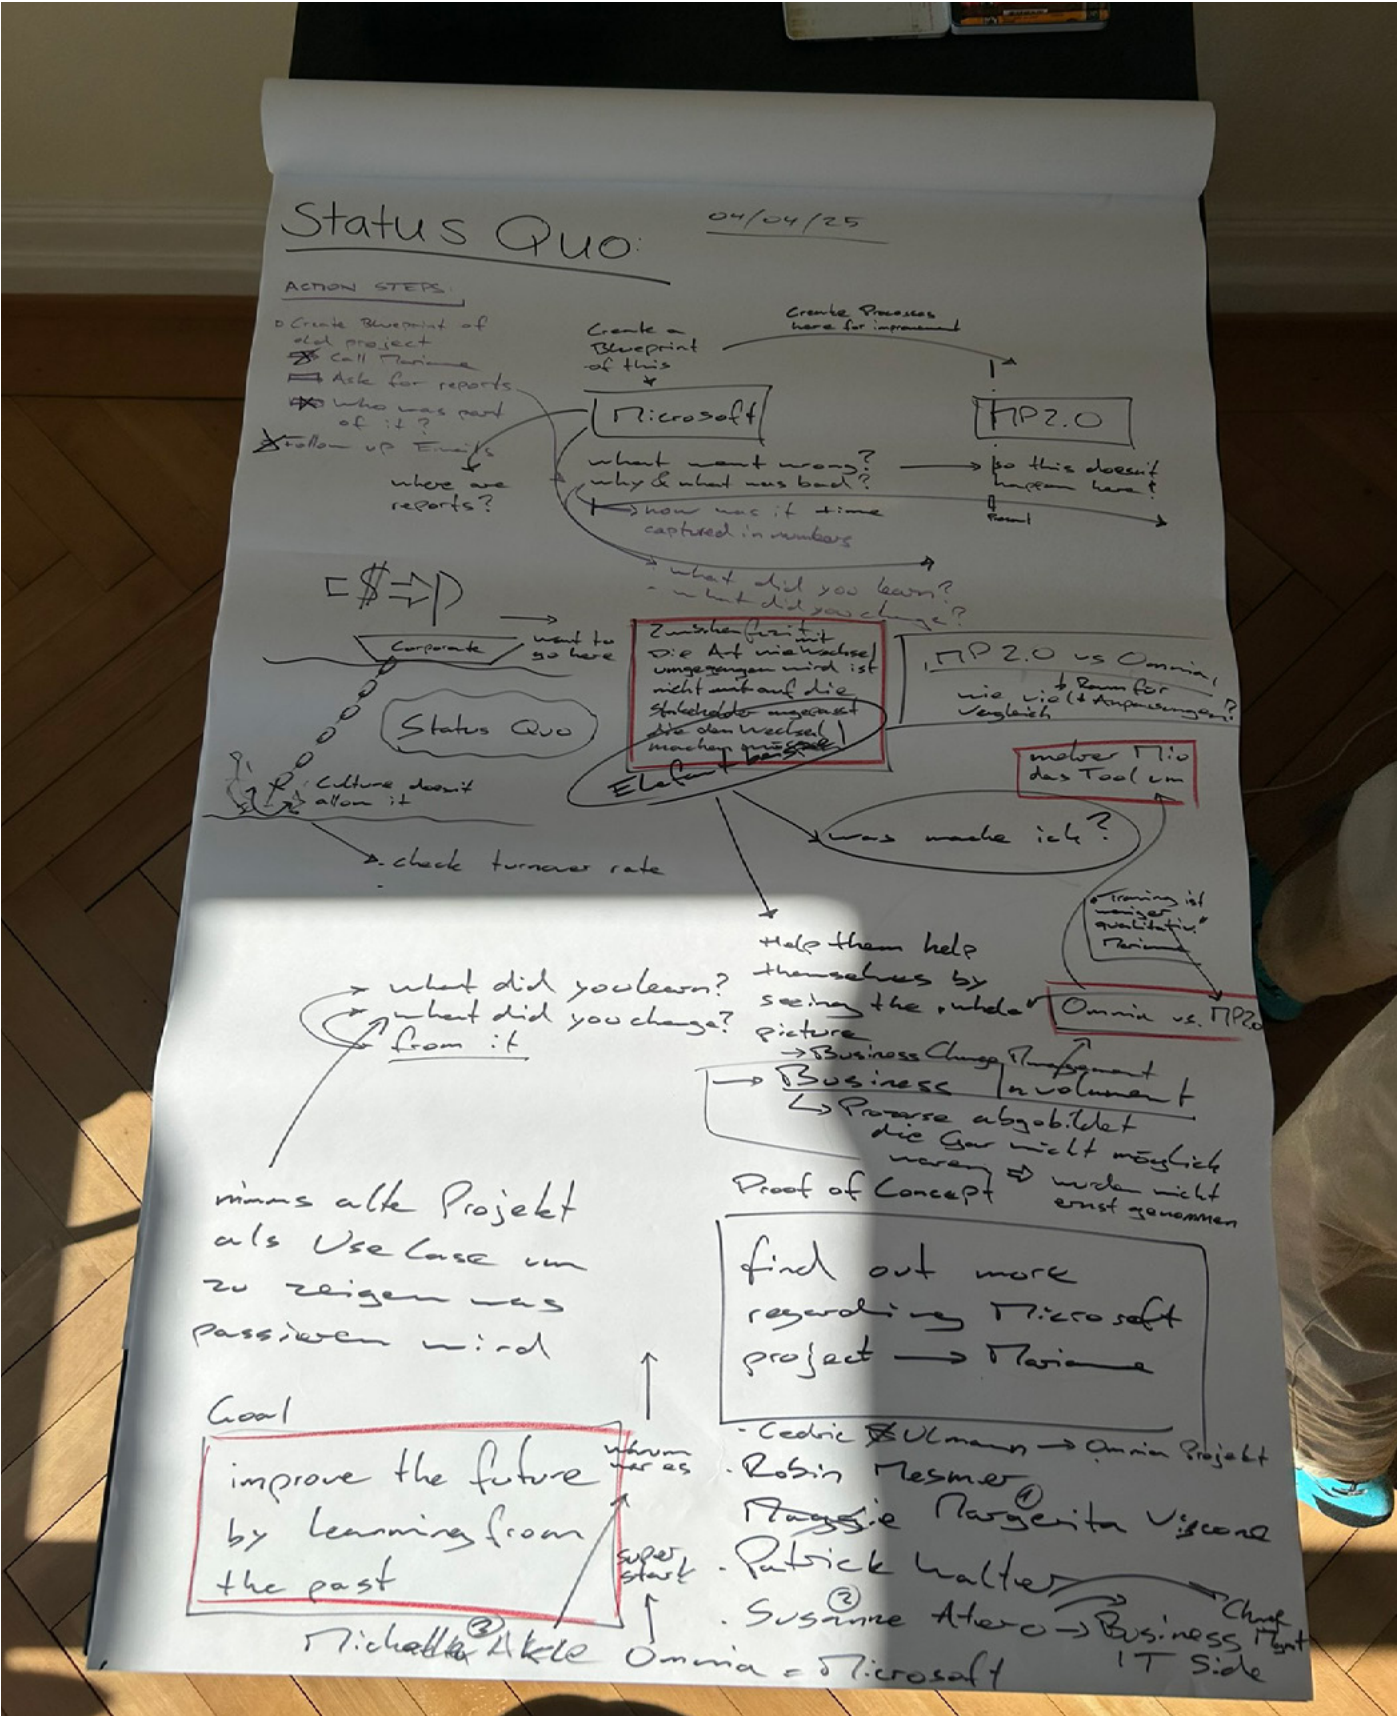 Status Quo:
04/04/25
ACTION STEPS:
Create Blueprint of
old project
Call Marianne
Ask for reports
Who was part
of it?
Follow up Emails
Create a
Blueprint
of this
Create Processes
here for improvement
Microsoft
MP2.0
where are
reports?
what went wrong?
why & what was bad?
so this doesn't
happen here!
how was it time
captured in numbers
- what did you learn?
- what did you change?
Corporate
want to
go here
Status Quo
Culture doesn't
allow it
- check turnover rate
-
Zwischenfazit
mit
Die Art wie Wechsel
umgegangen wird ist
nicht auf die
Stakeholder angepasst
die den Wechsel
machen
Elefant
MP 2.0 vs Omnia
Raum für
wie viel Anpassungen?
Vergleich
das Tool um
was mache ich?
"Training ist
weniger
qualitativ"
Marianne
Omnia vs. MP2.0
Help them help
themselves by
seeing the "whole"
picture
→ Business Change Management
→ Business Involvment
↳ Prozesse abgebildet
die Gar nicht möglich
waren ⇒ wurden nicht
ernst genommen
Proof of Concept
→ what did you learn?
→ what did you change?
from it
nimms alte Projekt
als Use Case um
zu zeigen was
passieren wird
find out more
regarding Microsoft
project → Marianne
Goal
improve the future
by learning from
the past
warum
war es
super
start
Omnia = Microsoft
- Cedric Ulmann → Omnia Projekt
- Robin Mesmer
Maggie Margerita ①
- Patrick Walter
- Susanne ② → Business
IT Side
Change
Mgmt
③